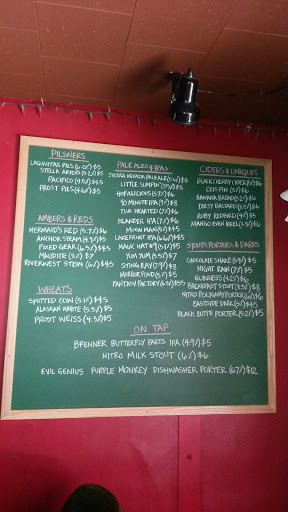 PILSNERS
LAGUNITAS PILS (6.0%) $5
STELLA ARTOIS (5.2%) $5
PACIFICO (4.4%) $4.5
PROST PILS (4.6%) $5
AMBERS & REDS
MERMAID'S RED (5.7%) $6
ANCHOR STEAM (4.9%) $5
FIXED GEAR (6.5%) $4.5
MAUDITE (8%) $7
RIVERWEST STEIN (6%) $5
WHEATS
SPOTTED COW (5.1%) $4.5
ALASKAN WHITE (5.3%) $5
PROST WEISS (4.3%) $5
PALE ALES & IPAS
SIERRA NEVADA PALE ALE (5.6%) $5
LITTLE SUMPIN' (7.5%) $5
HOPALICIOUS (5.7%) $6
90 MINUTE IPA (9%) $8
TWO HEARTED (7%) $6
ISLANDER IPA (7%) $6
MOON MAN (5%) $4.5
LAKEFRONT IPA (6.6%) $4.5
MAGIC HAT #9 (5.1%) $4.5
YUM YUM (5.5%) $7
STING RAY (7.9%) $8
MIRROR POND (5%) $5
FANTASY FACTORY (6.5%) $5.5
CIDERS & UNIQUES
BLACK CHERRY CIDER $6
CRISPIN (5%) $6
BANANA BREAD (5.2%) $7
DIRTY BASTARD (8.5%) $6
RUBY REDBIRD (4%) $5
MANGO EVEN KEEL (3.8%) $6
STOUTS, PORTERS, & DARKS
CHOCOLATE SHAKE (5.9%) $5
NIGHT RAIN (7%) $5
GUINNESS (4.2%) $6
BREAKFAST STOUT (8.3%) $8
NITRO POLYGAMY PORTER (6%) $6
EASTSIDE DARK (5%) $4.5
BLACK BUTTE PORTER (5.2%) $5
ON TAP
BRENNER BUTTERFLY FARTS IPA (4.9%) $5
NITRO MILK STOUT (6%) $6
EVIL GENIUS PURPLE MONKEY DISHWASHER PORTER (6.7%) $12